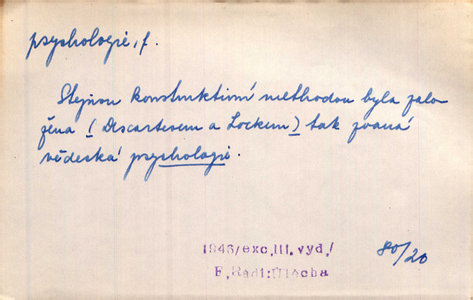 psychologie, f.
Stejnou konstruktivní methodou byla zalo
žena (Descartesem a Lockem) tak zvaná
vědecká psychologie.
1946/exc. III. vyd./
F. Rádl: Útěcha
80/20